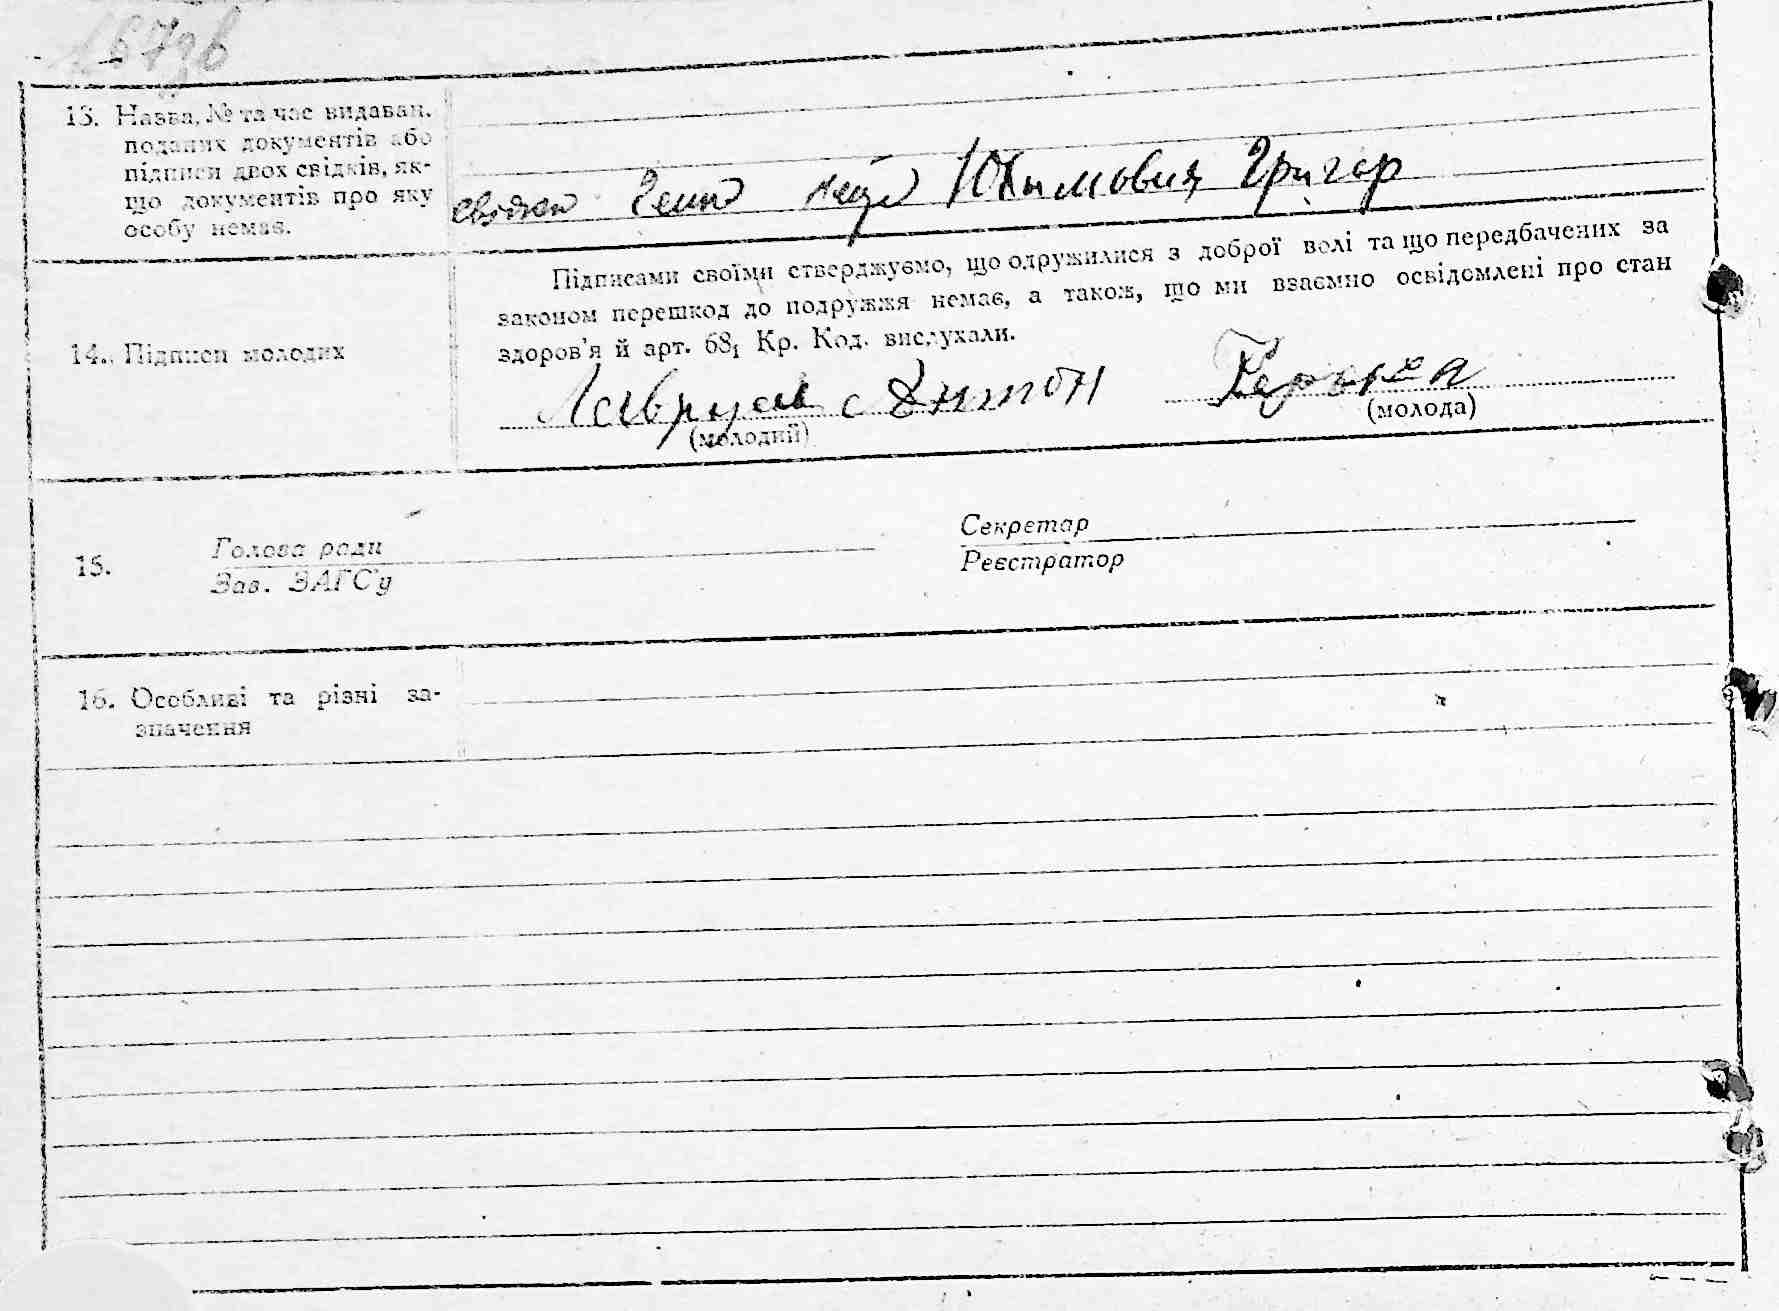 157зв
13. Назва, № та час видаван.
поданих документів або
підписи двох свідків, як-
що документів про яку
особу немає.
свідки Юхимович Григор
Підписами своїми стверджуємо, що одружилися з доброї волі та що передбачених за
законом перешкод до подружжя немає, а також, що ми взаємно освідомлені про стан
здоров'я й арт. 68₁ Кр. Код. вислухали.
14. Підписи молодих
Антон
(молодий)
(молода)
15.
Голова ради
Зав. ЗАГС'у
Секретар
Реєстратор
16. Особливі та різні за-
значення